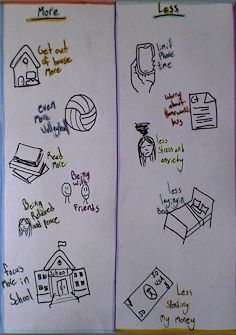 More
Get out
of house
More
Even
More
Volleyball
Read
More
Being
with
Friends
Being
Relaxed
and Peace
Focus
More in
School
School
Less
Limit
Phone
time
Worry
about
Homework
less
less
Stress and
anxiety
Less
laying in
bed
Less
My money